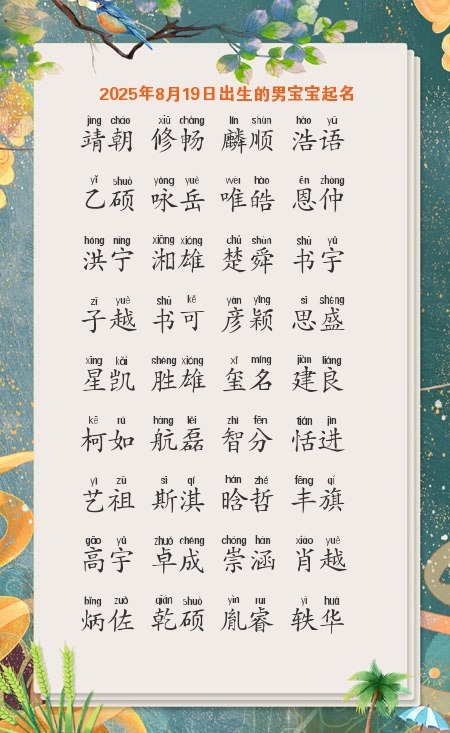 2025年8月19日出生的男宝宝起名
jìng cháo xiū chàng lín shùn hào yǔ
靖朝 修畅 麟顺 浩语
yǐ shuò yǒng yuè wéi hào ēn zhòng
乙硕 咏岳 唯皓 恩仲
hóng níng xiāng xióng chǔ shùn shū yǔ
洪宁 湘雄 楚舜 书宇
zǐ yuè shū kě yàn yǐng sī shèng
子越 书可 彦颖 思盛
xīng kǎi shèng xióng xǐ míng jiàn liáng
星凯 胜雄 玺名 建良
kē rú háng lěi zhì fēn tián jìn
柯如 航磊 智分 恬进
yì zǔ sī qí hán zhé fēng qí
艺祖 斯淇 晗哲 丰旗
gāo yǔ zhuó chéng chóng hán xiào yuè
高宇 卓成 崇涵 肖越
bǐng zuǒ qián shuò yìn ruì yì huá
炳佐 乾硕 胤睿 轶华